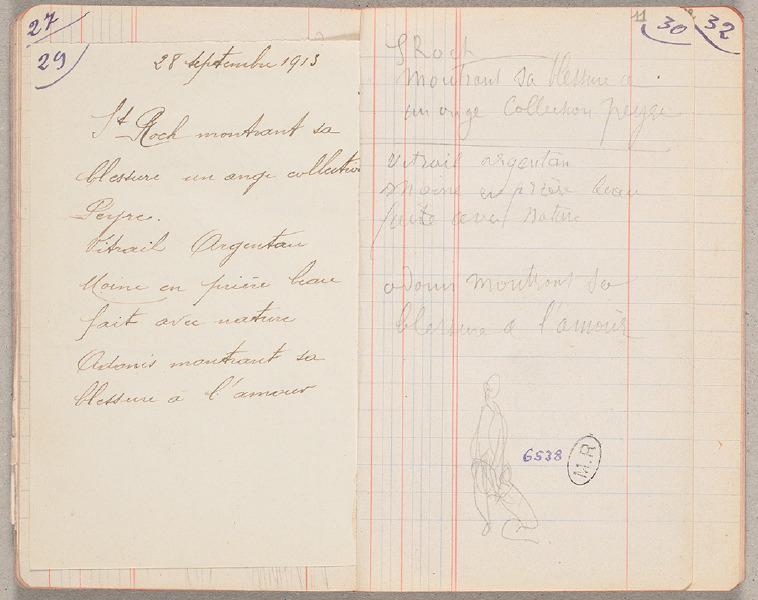 27
29
28 septembre 1913
St Roch montrant sa
blessure un ange collection
Peyre.
Vitrail Argentan
Moine en prière beau
fait avec nature
Adonis montrant sa
blessure à l'amour
11
30
32
S Roch
montrant sa blessure a
un ange Collection peyre
Vitrail argentan
Moine en prière beau
faite avec nature
adonis montrant sa
blessure a l'amour
6538
M.R